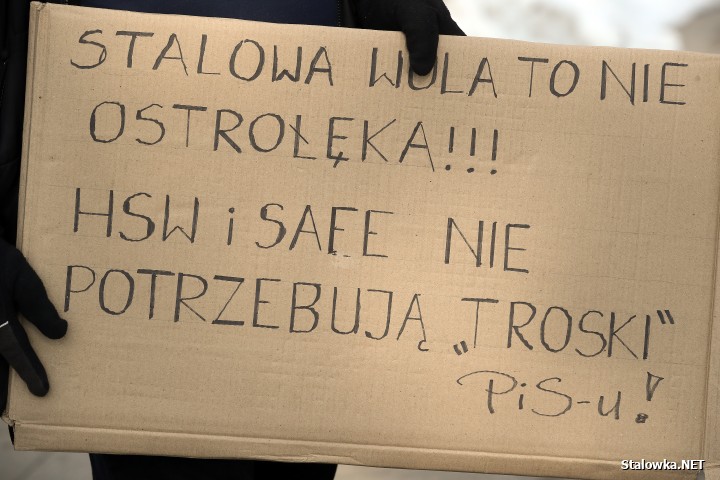 STALOWA WOLA TO NIE
OSTROŁĘKA!!!
HSW i SAFE NIE
POTRZEBUJĄ „TROSKI"
PiS-u!
Stalowka.NET